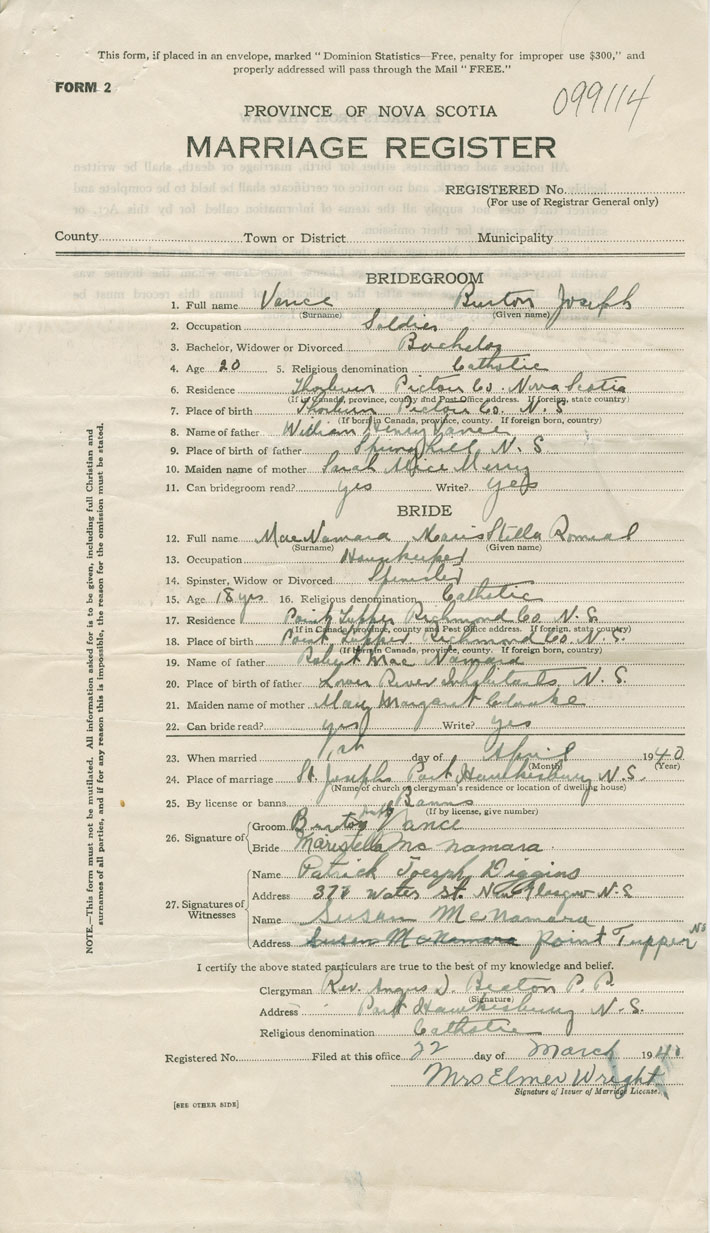 This form, if placed in an envelope, marked " Dominion Statistics—Free, penalty for improper use $300," and
properly addressed will pass through the Mail " FREE."
FORM 2
099114
PROVINCE OF NOVA SCOTIA
MARRIAGE REGISTER
REGISTERED No.
(For use of Registrar General only)
County Town or District Municipality
BRIDEGROOM
1. Full name Vance Burton Joseph
(Surname) (Given name)
2. Occupation Soldier
3. Bachelor, Widower or Divorced Bachelor
4. Age 20 5. Religious denomination Catholic
6. Residence Thorburn Pictou Co. Nova Scotia
(If in Canada, province, county and Post Office address. If foreign, state country)
7. Place of birth Thorburn Pictou Co. N. S
(If born in Canada, province, county. If foreign born, country)
8. Name of father William Henry Vance
9. Place of father Springhill N. S
10. Maiden name of mother Sarah Alice Merry
11. Can bridegroom read? yes Write? yes
BRIDE
12. Full name MacNamara Maris Stella Romial
(Surname) (Given name)
13. Occupation Housekeeper
14. Spinster, Widow or Divorced Spinster
15. Age 18 yrs 16. Religious denomination Catholic
17. Residence Point Tupper Richmond Co. N. S.
(If in Canada, province, county and Post Office address. If foreign, state country)
18. Place of birth Point Tupper Richmond Co. N. S.
(If born in Canada, province, county. If foreign born, country)
19. Name of father Robert MacNamara
20. Place of birth of father Lower River Inhabitants N. S.
21. Maiden name of mother Mary Margaret Clarke
22. Can bride read? yes Write? yes
23. When married 1st day of April 1940
(Month) (Year)
24. Place of marriage St. Josephs Port Hawkesbury N. S.
(Name of church or clergyman's residence or location of dwelling house)
25. By license or banns Banns
(If by license, give number)
26. Signature of Groom Burton Vance
Bride Maristella Mc namara
27. Signatures of Witnesses
Name Patrick Joseph Diggins
Address Water St. New Glasgow N.S
Name Susan McNamara
Address Susan McNamara Point Tupper NS
I certify the above stated particulars are true to the best of my knowledge and belief.
Clergyman Rev. Angus D. Beaton P. P.
(Signature)
Address Port Hawkesbury N. S.
Religious denomination Catholic
Registered No. Filed at this office 22 day of March 1940
Mrs Elmer Wright
Signature of Issuer of Marriage License.
[SEE OTHER SIDE]
NOTE.—This form must not be mutilated. All information asked for is to be given, including full Christian and
surnames of all parties, and if for any reason this is impossible, the reason for the omission must be stated.